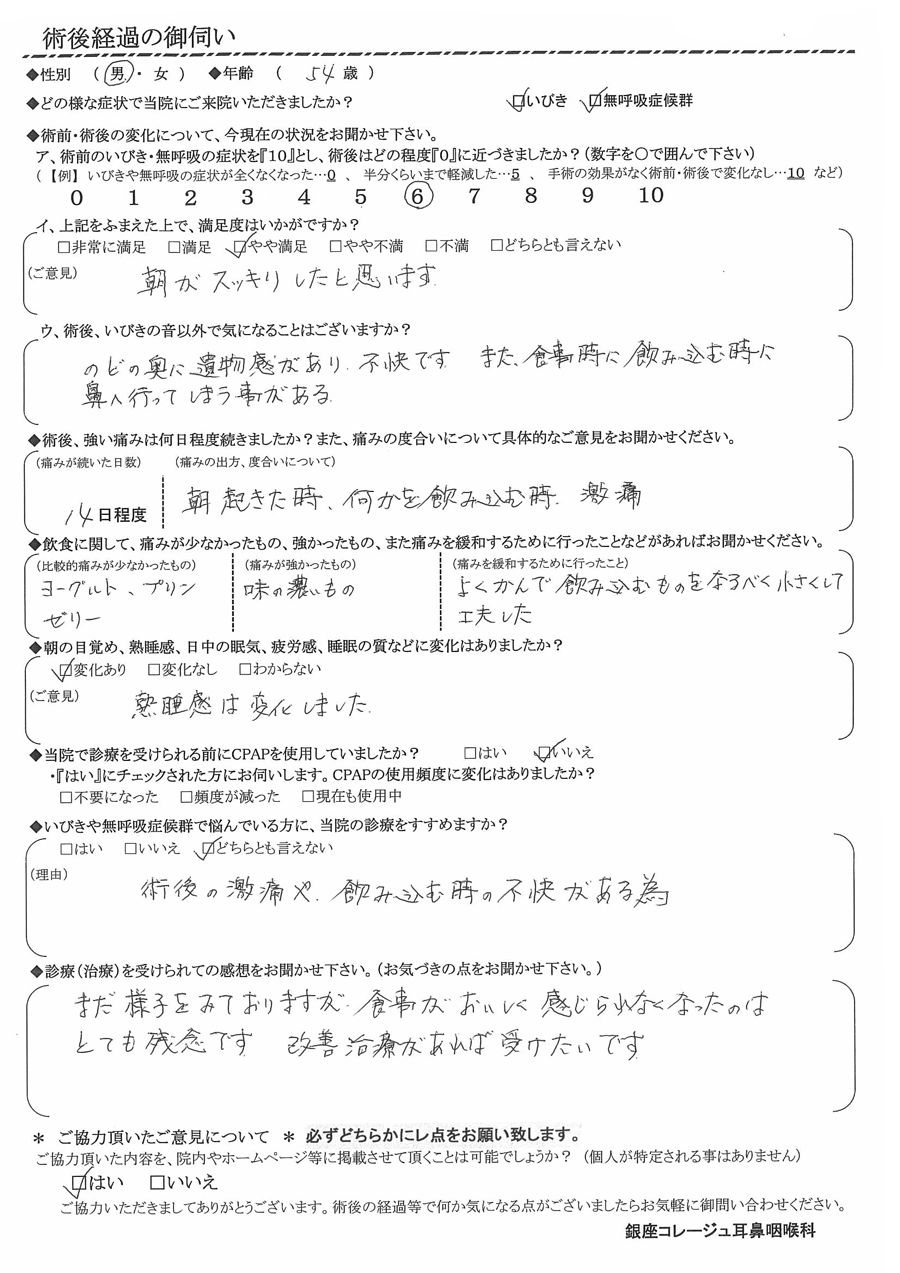 術後経過の御伺い
◆性別 （ 男 ・ 女 ） ◆年齢 （ 54 歳 ）
◆どの様な症状で当院にご来院いただきましたか？ ☑いびき ☑無呼吸症候群
◆術前・術後の変化について、今現在の状況をお聞かせ下さい。
ア、術前のいびき・無呼吸の症状を『10』とし、術後はどの程度『0』に近づきましたか？（数字を○で囲んで下さい）
（【例】 いびきや無呼吸の症状が全くなくなった…0 、 半分くらいまで軽減した…5 、 手術の効果がなく術前・術後で変化なし…10 など）
0 1 2 3 4 5 6 7 8 9 10
イ、上記をふまえた上で、満足度はいかがですか？
□非常に満足 □満足 ☑やや満足 □やや不満 □不満 □どちらとも言えない
（ご意見） 朝がスッキリしたと思います
ウ、術後、いびきの音以外で気になることはございますか？
のどの奥に遺物感があり、不快です また、食事時に飲み込む時に
鼻へ行ってしまう事がある
◆術後、強い痛みは何日程度続きましたか？また、痛みの度合いについて具体的なご意見をお聞かせください。
（痛みが続いた日数） （痛みの出方、度合いについて）
14日程度 朝起きた時、何かを飲み込む時、激痛
◆飲食に関して、痛みが少なかったもの、強かったもの、また痛みを緩和するために行ったことなどがあればお聞かせください。
（比較的痛みが少なかったもの） （痛みが強かったもの） （痛みを緩和するために行ったこと）
ヨーグルト、プリン 味の濃いもの よくかんで飲み込むものをなるべく小さくして
ゼリー 工夫した
◆朝の目覚め、熟睡感、日中の眠気、疲労感、睡眠の質などに変化はありましたか？
☑変化あり □変化なし □わからない
（ご意見） 熟睡感は変化しました.
◆当院で診療を受けられる前にCPAPを使用していましたか？ □はい ☑いいえ
・『はい』にチェックされた方にお伺いします。CPAPの使用頻度に変化はありましたか？
□不要になった □頻度が減った □現在も使用中
◆いびきや無呼吸症候群で悩んでいる方に、当院の診療をすすめますか？
□はい □いいえ ☑どちらとも言えない
（理由） 術後の激痛や、飲み込む時の不快がある為
◆診療（治療）を受けられての感想をお聞かせ下さい。（お気づきの点をお聞かせ下さい。）
まだ様子をみておりますが、食事がおいしく感じられなくなったのは
とても残念です 改善治療があれば受けたいです
＊ ご協力頂いたご意見について ＊ 必ずどちらかにレ点をお願い致します。
ご協力頂いた内容を、院内やホームページ等に掲載させて頂くことは可能でしょうか？（個人が特定される事はありません）
☑はい □いいえ
ご協力いただきましてありがとうございます。術後の経過等で何か気になる点がございましたらお気軽に御問い合わせください。
銀座コレージュ耳鼻咽喉科